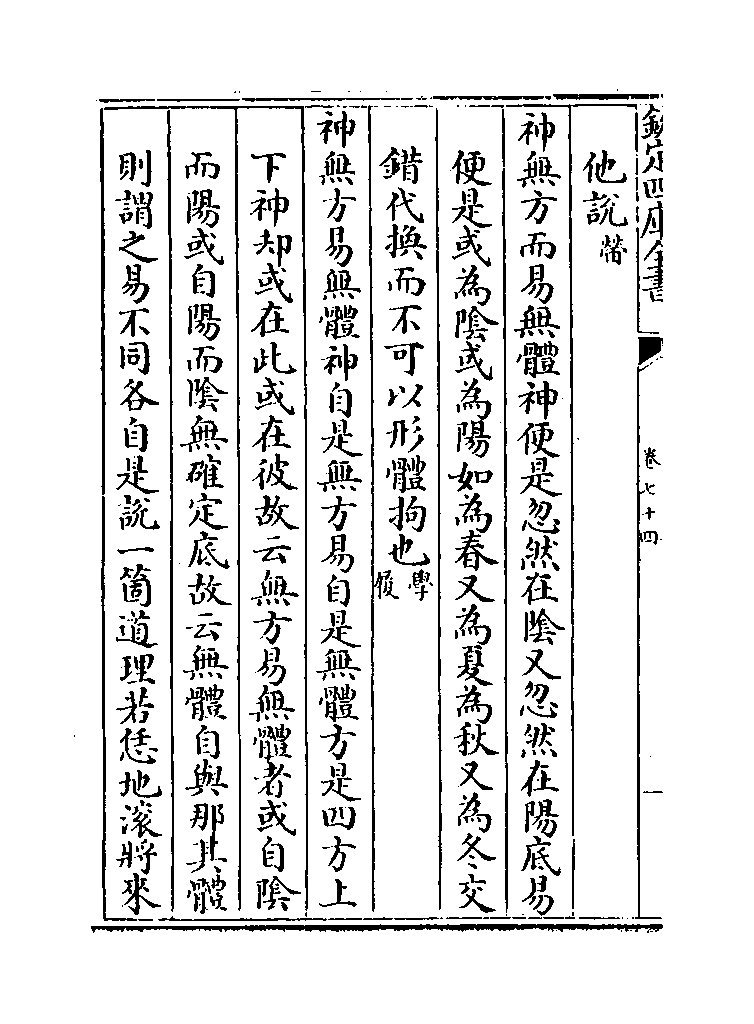 欽定四庫全書
卷七十四
他說㽦
神無方而易無體神便是忽然在陰又忽然在陽底易
便是或為陰或為陽如為春又為夏為秋又為冬交
錯代換而不可以形體拘也學履
神無方易無體神自是無方易自是無體方是四方上
下神却或在此或在彼故云無方易無體者或自陰
而陽或自陽而陰無確定底故云無體自與那其體
則謂之易不同各自是說一箇道理若恁地滚將來